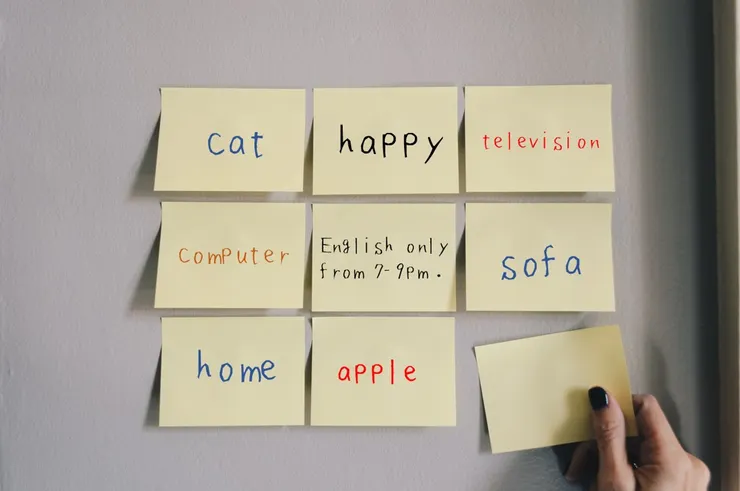 cat
happy
television
computer
English only
from 7-9pm.
sofa
home
apple